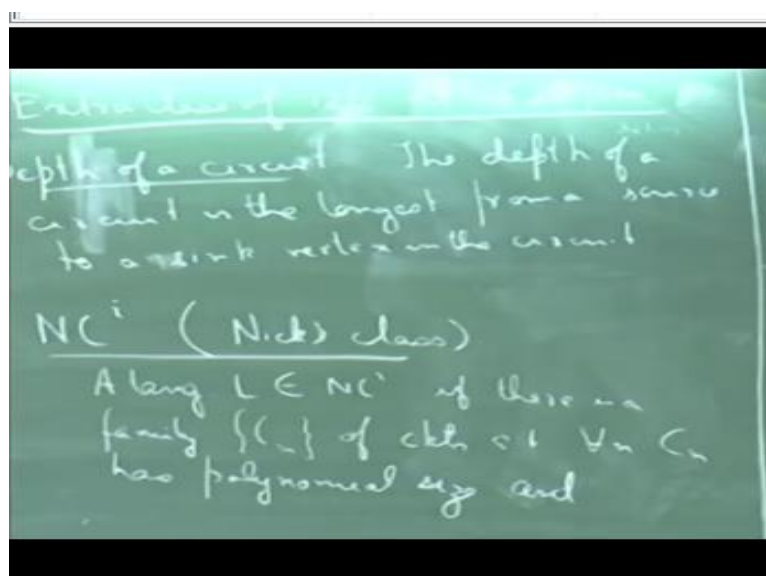 Depth of a circuit The depth of a
circuit is the longest from a source
to a sink vertex in the circuit
NCⁱ (Nick's class)
A lang L ∈ NCⁱ if there is a
family {Cₙ} of ckts st ∀n Cₙ
has polynomial size and